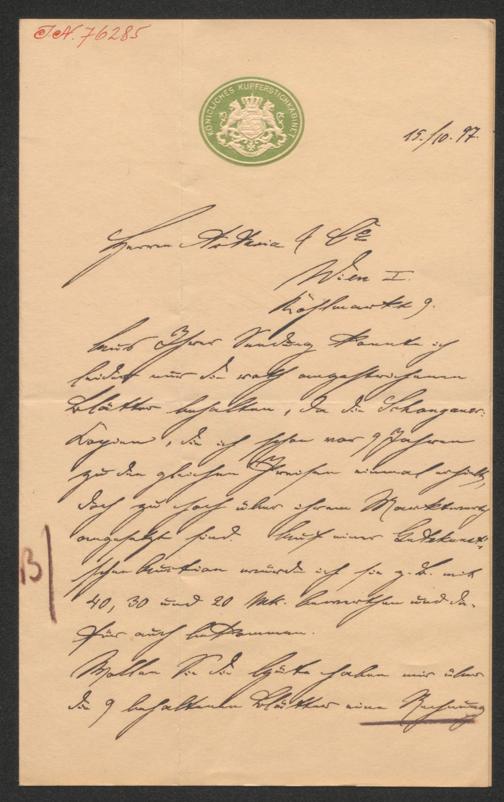 I.N. 76285
KÖNIGLICHES KUPFERSTICHKABINET
15./10. 97.
Herrn Artaria & Cie
Wien I.
Kohlmarkt 9.
Aus Ihrer Sendung konnte ich
leider nur die roth angestrichenen
Blätter behalten, da die Schongauer-
Copien, die ich schon vor 9 Jahren
zu den gleichen Preisen einmal erhielt,
doch zu hoch über ihrem Marktwerth
angesetzt sind. Auf einer Gutekunst-
schen Auction würde ich sie z. B. mit
40, 30 und 20 Mk. bewerthen und da-
für auch bekommen.
Wollen Sie die Güte haben mir über
die 9 behaltenen Blätter eine Rechnung
B